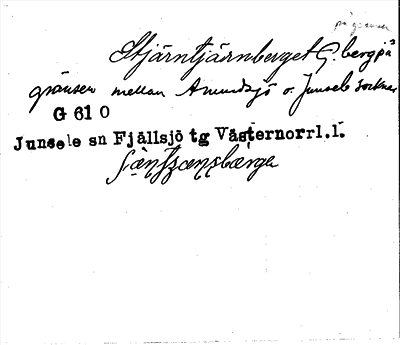 på gränsen
Stjärntjärnberget G. berg på
gränsen mellan Anundsjö o. Junsele socknar
G 61 0
Junsele sn Fjällsjö tg Västernorrl.l.